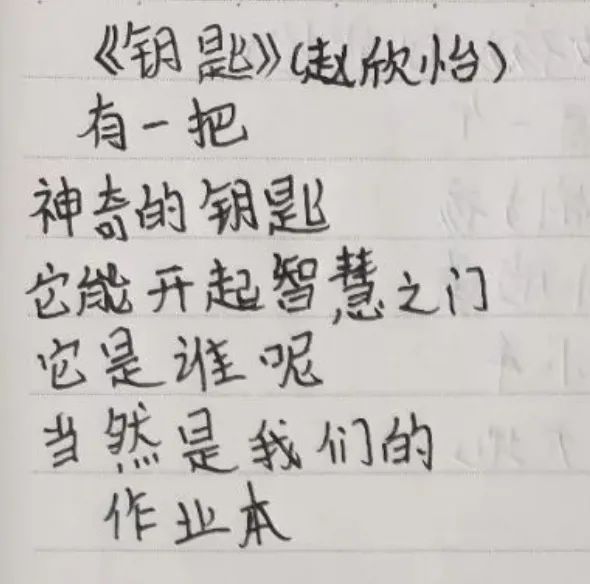 《钥匙》(赵欣怡)
有一把
神奇的钥匙
它能开起智慧之门
它是谁呢
当然是我们的
作业本